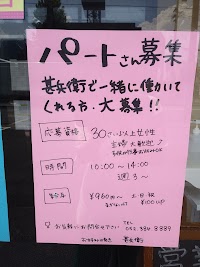 パートさん募集
甚兵衛で一緒に働いて
くれる方、大募集!!
応募資格
30さい以上女性
主婦大歓迎♪
時間
10:00～14:00
週3～
給与
¥960 土日祝
¥100 UP
お気軽にお問合せ下さい
TEL
甚兵衛
営業